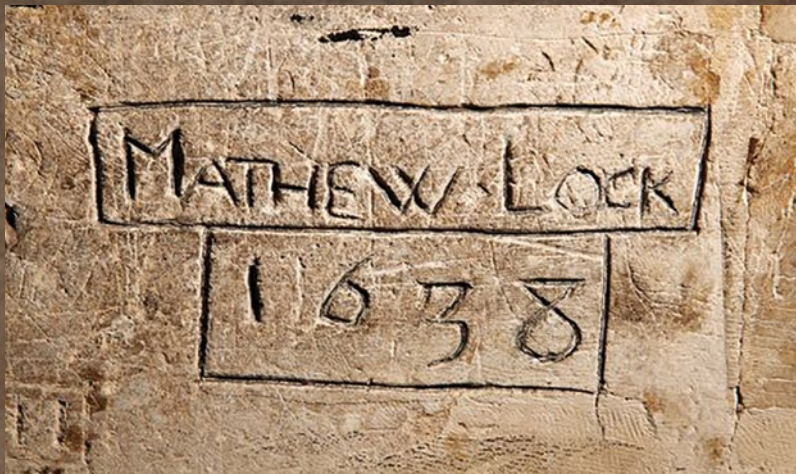 MATHEW LOCK
1638